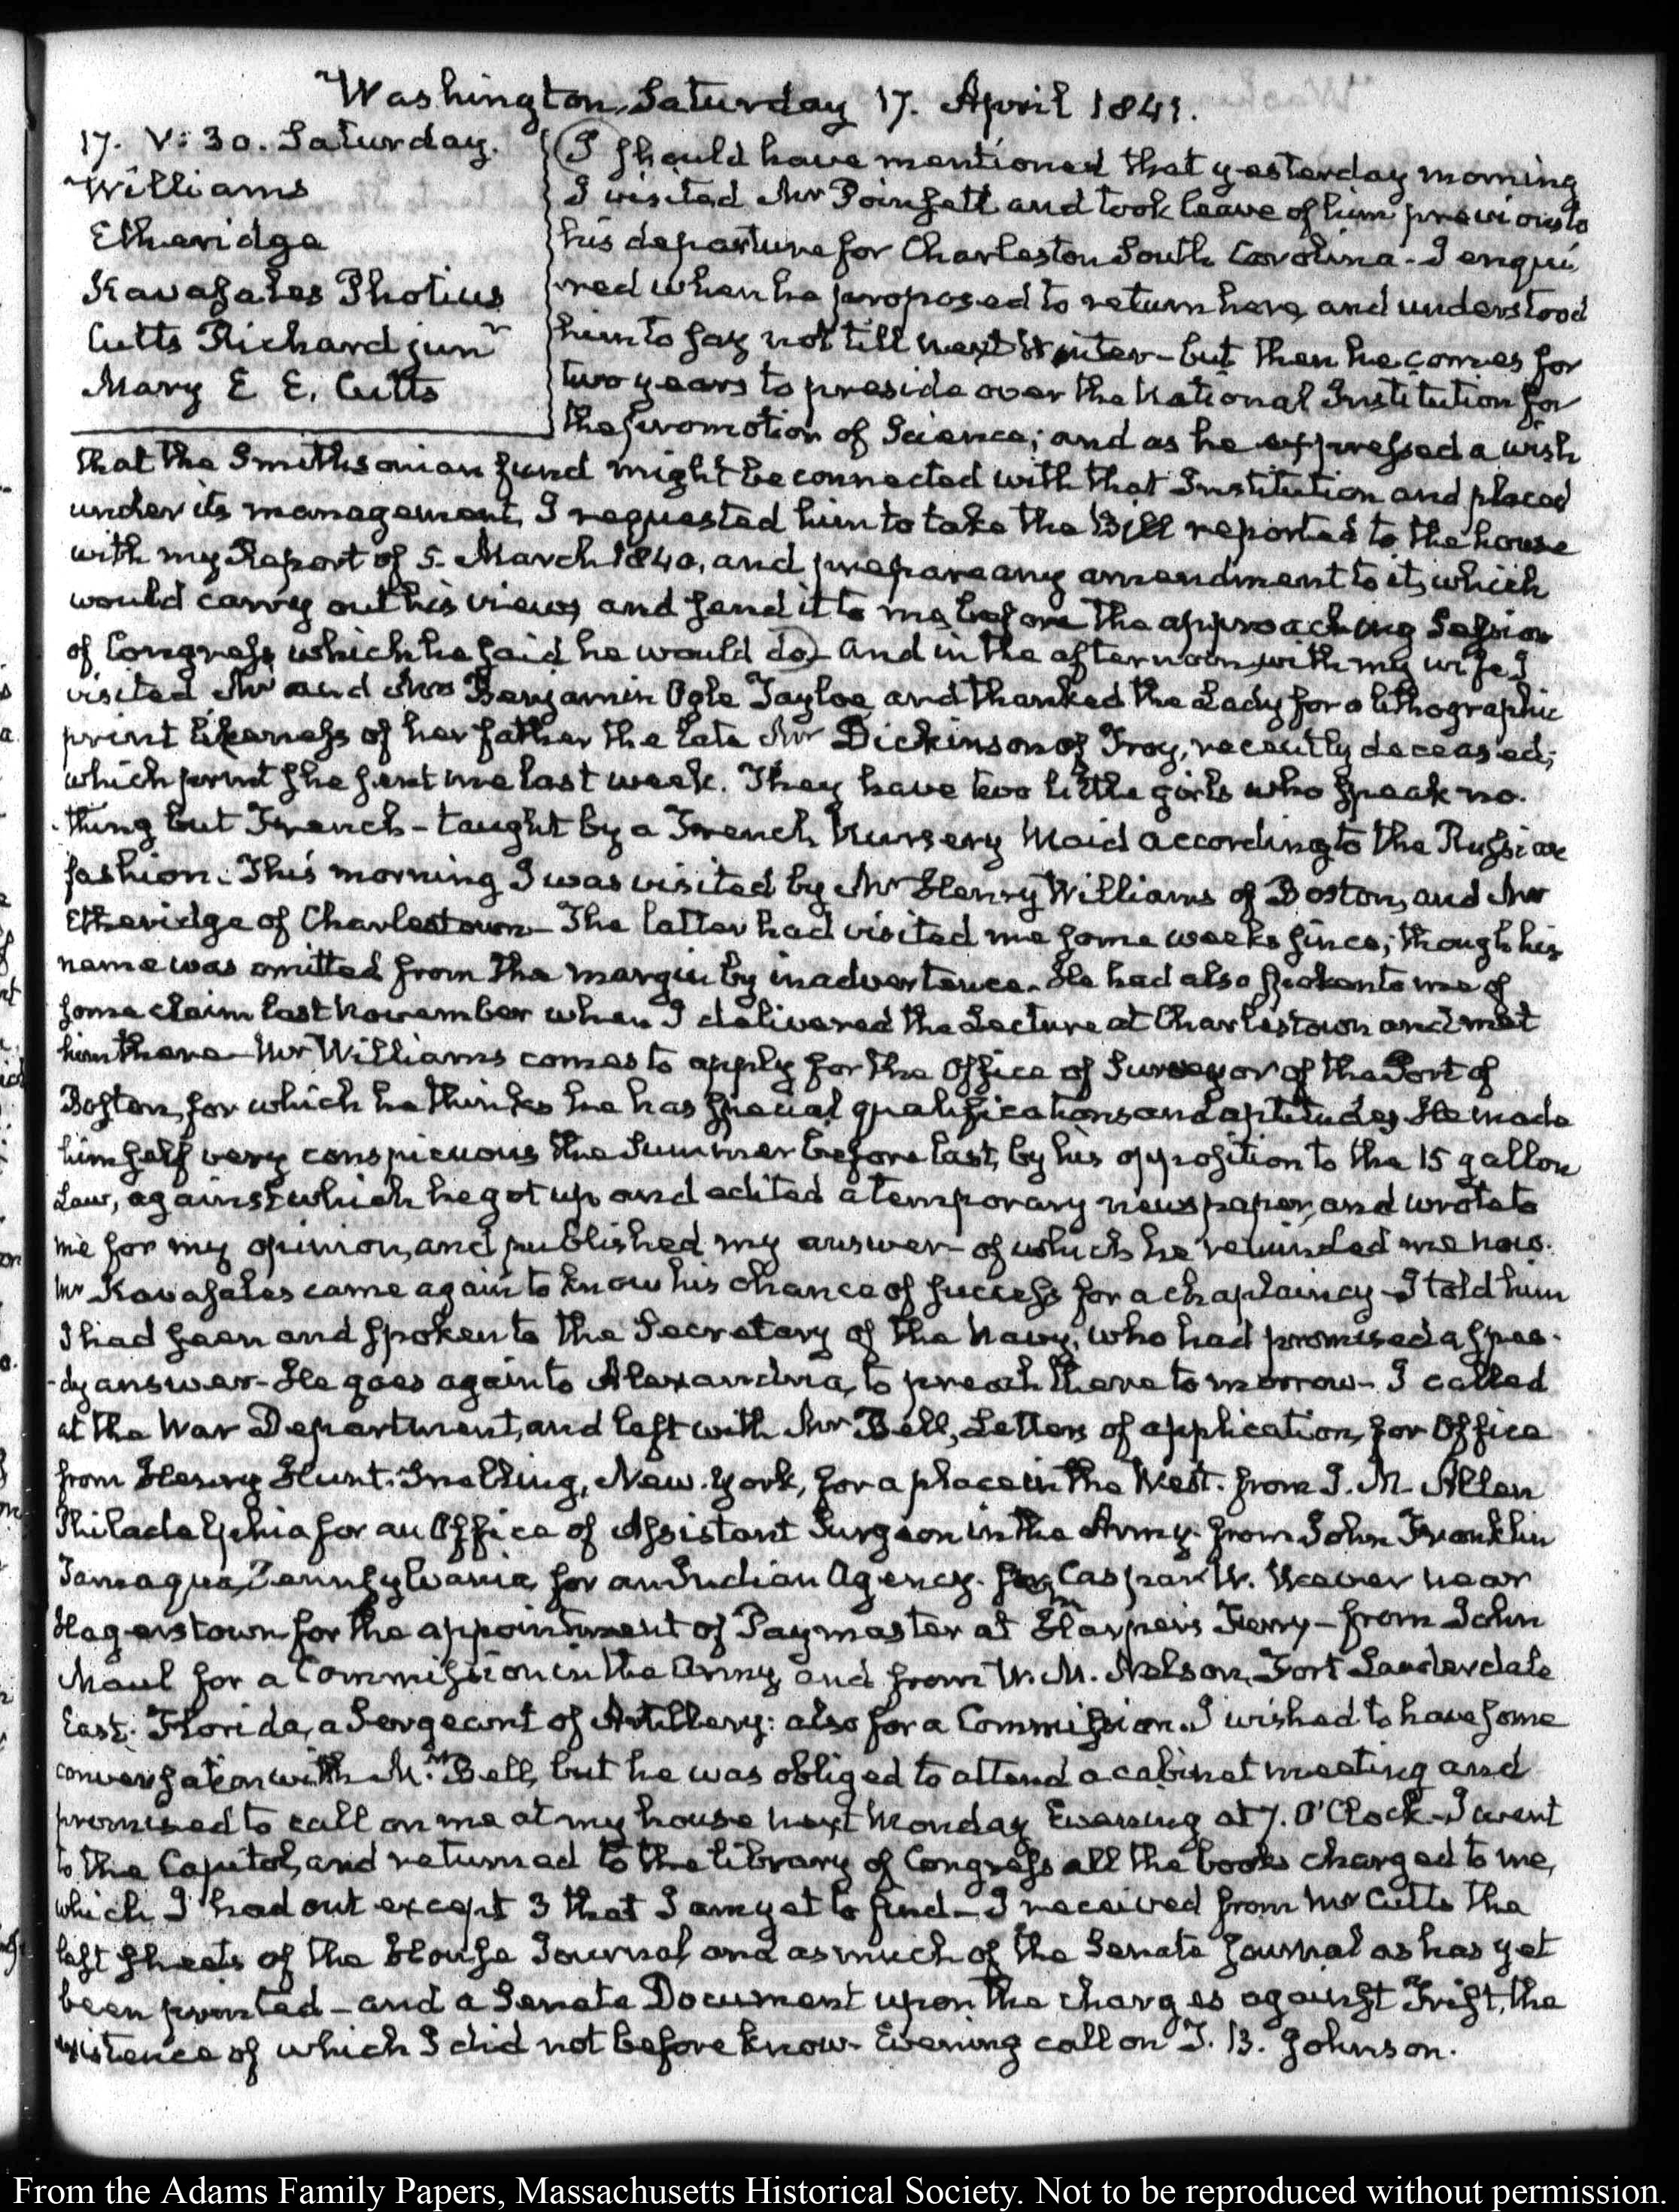 Washington, Saturday 17. April 1841.
17. V: 30. Saturday.
Williams
Etheridge
Kavasales Photius
Cutts Richard junr
Mary E E. Cutts
I should have mentioned that yesterday morning
I visited Mr Poinsett and took leave of him previous to
his departure for Charleston South Carolina - I enqui
red when he proposed to return here, and understood
him to say not till next Winter - but then he comes for
two years to preside over the National Institution for
the promotion of Science; and as he expressed a wish
that the Smithsonian fund might be connected with that Institution and placed
under its management, I requested him to take the Bill reported to the house
with my Report of 5. March 1840, and prepare any amendment to it, which
would carry out his views, and send it to me before the approaching Session
of Congress, which he said he would do - And in the afternoon, with my wife, I
visited Mr and Mrs Benjamin Ogle Tayloe, and thanked the Lady for a lithographic
print likeness of her father the late Mr Dickinson of Troy, recently deceased;
which print she sent me last week. They have two little girls who speak no-
thing but French - taught by a French Nursery Maid according to the Russian
fashion. This morning I was visited by Mr Henry Williams of Boston, and Mr
Etheridge of Charlestown - The latter had visited me some weeks since; though his
name was omitted from the margin by inadvertence. He had also spoken to me of
some claim last November when I delivered the Lecture at Charlestown and met
him there - Mr Williams comes to apply for the Office of Surveyor of the Port of
Boston, for which he thinks he has special qualifications and aptitudes. He made
himself very conspicuous the Summer before last, by his opposition to the 15 gallon
Law, against which he got up and edited a temporary newspaper, and wrote to
me for my opinion, and published my answer - of which he reminded me now.
Mr Kavasales came again to know his chance of success for a chaplaincy - I told him
I had seen and spoken to the Secretary of the Navy, who had promised a spee-
-dy answer - He goes again to Alexandria, to preach there to morrow - I called
at the War Department, and left with Mr Bell, Letters of application, for Office
from Henry Hunt Snelling, New-York, for a place in the West. from J. M. Allen
Philadelphia for an Office of Assistant Surgeon in the Army. from John Franklin
Tamaqua, Pennsylvania, for an Indian Agency. from Caspar W. Weaver near
Hagerstown for the appointment of Paymaster at Harper's Ferry - from John
Maul for a Commission in the Army, and from W. M. Nelson, Fort Lauderdale
East. Florida, a Sergeant of Artillery: also for a Commission. I wished to have some
conversation with Mr Bell, but he was obliged to attend a cabinet meeting and
promised to call on me at my house next Monday Evening at 7. O'Clock - I went
to the Capitol, and returned to the library of Congress all the books charged to me,
which I had out except 3 that I am yet to find - I received from Mr Cutts the
last sheets of the House Journal and as much of the Senate Journal as has yet
been printed - and a Senate Document upon the charges against Trist, the
existence of which I did not before know - Evening call on T. B. Johnson.
From the Adams Family Papers, Massachusetts Historical Society. Not to be reproduced without permission.